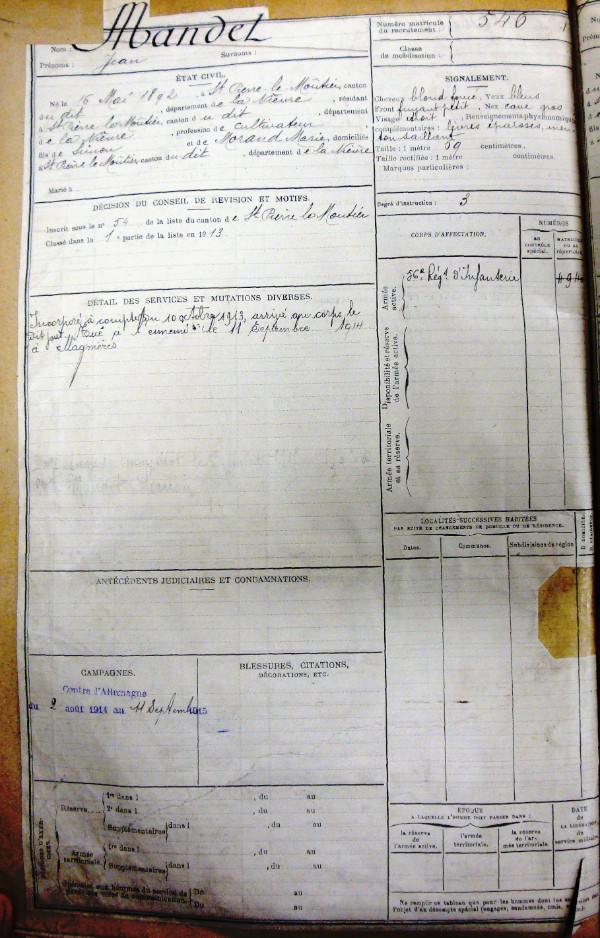 Nom : Mandet
Prénoms : Jean
Surnoms :
ÉTAT CIVIL.
Né le 16 Mai 1892, à St Pierre le Moûtier, canton
du dit, département de la Nièvre, résidant
à St Pierre le Moutier, canton du dit, département
de la Nièvre, profession de Cultivateur
fils de Simon et de Morand Marie, domiciliés
à St Pierre le Moutier canton du dit, département de la Nièvre
Marié à
DÉCISION DU CONSEIL DE REVISION ET MOTIFS.
Inscrit sous le n° 54 de la liste du canton de St Pierre le Moutier
Classé dans la 1e partie de la liste en 1913
DÉTAIL DES SERVICES ET MUTATIONS DIVERSES.
Incorporé à compter du 10 octobre 1913, arrivé au corps le
dit jour. Tué à l'ennemi le 11 Septembre 1914
à Magnières
ANTÉCÉDENTS JUDICIAIRES ET CONDAMNATIONS.
CAMPAGNES.
Contre l'Allemagne
du 2 août 1914 au 11 Septemb 1915
BLESSURES, CITATIONS,
DÉCORATIONS, ETC.
Réserve
1re dans l , du au
2e dans l , du au
Supplémentaires dans l , du au
Armée
territoriale.
1re dans l , du au
Supplémentaires dans l , du au
Spéciales aux hommes du service de
Du au
Du au
Numéro matricule
du recrutement : 546
Classe
de mobilisation :
SIGNALEMENT.
Cheveux blond foncé, Yeux bleus
Front fuyant petit, Nez cave gros
Visage Renseignements physionomiques
complémentaires : lèvres
Taille : 1 mètre 69 centimètres.
Taille rectifiée : 1 mètre centimètres.
Marques particulières :
Degré d'instruction : 3
CORPS D'AFFECTATION.
NUMÉROS
AU
CONTRÔLE
SPÉCIAL.
MATRICULE
OU AU
RÉPERTOIRE
Armée
active.
56e Régt d'Infanterie
Disponibilité et réserve
de l'armée active.
Armée territoriale
et sa réserve.
LOCALITÉS SUCCESSIVES HABITÉES
PAR SUITE DE CHANGEMENTS DE DOMICILE OU DE RÉSIDENCE.
Dates.
Communes.
Subdivisions de région
ÉPOQUE
À LAQUELLE L'HOMME DOIT PASSER DANS :
la réserve
de l'armée active.
l'armée
territoriale.
la réserve
de l'ar-
mée territoriale.
DATE
de
service militaire
Ne remplir ce tableau que pour les hommes dont les
l'objet d'un décompte spécial (engagés, condamnés, omis,